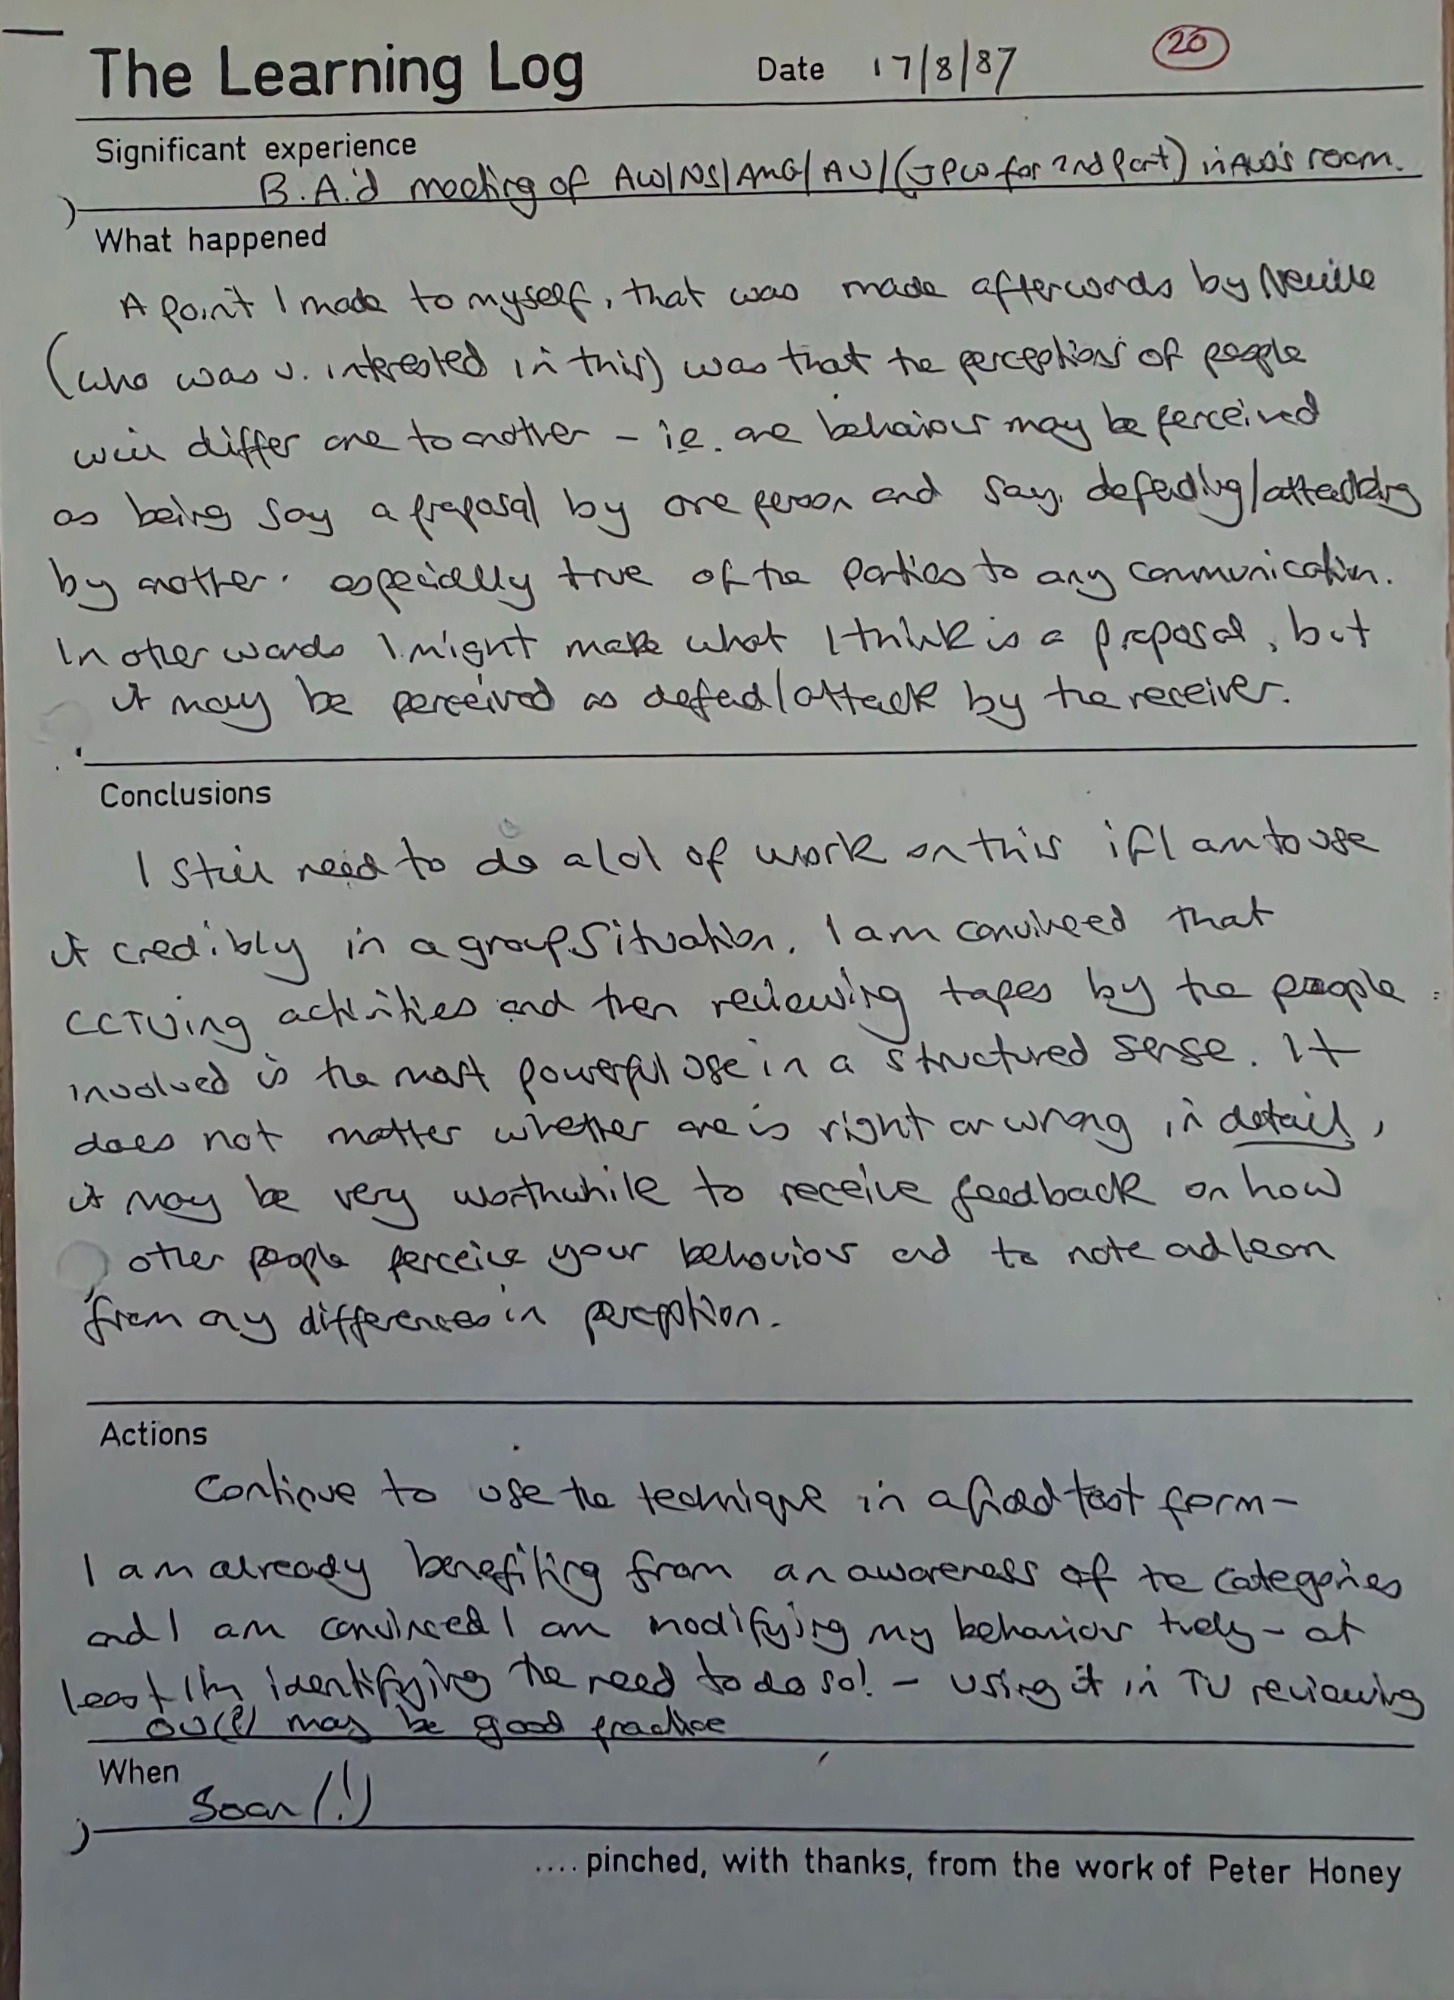 The Learning Log Date 17/8/87 20
Significant experience
B.A.'d meeting of AW/NS/AMG/AU/(JPW for 2nd part) in AW's room.
What happened
A point I made to myself, that was made afterwards by Neville
(who was v. interested in this) was that the perceptions of people
will differ one to another – i.e. one behaviour may be perceived
as being say a proposal by one person and say, defending/attacking
by another. especially true of the parties to any communication.
In other words I might make what I think is a proposal, but
it may be perceived as defend/attack by the receiver.
Conclusions
I still need to do a lot of work on this if I am to use
it credibly in a group situation. I am convinced that
CCTVing activities and then reviewing tapes by the people
involved is the most powerful use in a structured sense. It
does not matter whether one is right or wrong in detail,
it may be very worthwhile to receive feedback on how
other people perceive your behaviour and to note and learn
from any differences in perception.
Actions
Continue to use the technique in a field test form –
I am already benefiting from an awareness of the categories
and I am convinced I am modifying my behaviour – at
least I'm identifying the need to do so! – using it in TV reviewing
may be good practice
When
Soon (!)
.... pinched, with thanks, from the work of Peter Honey